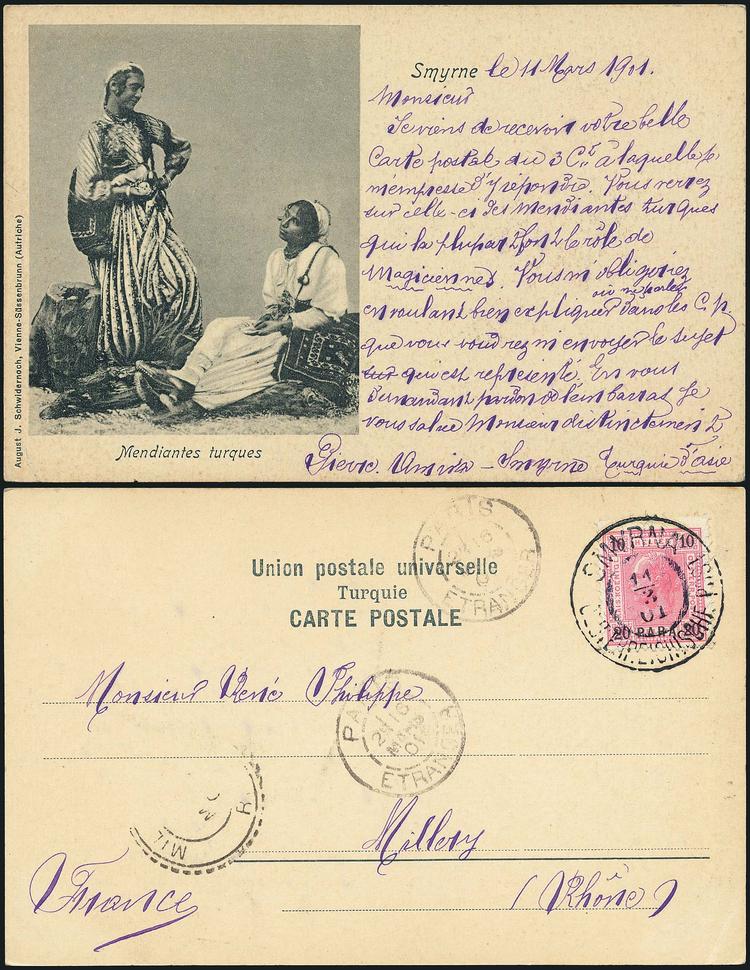 Smyrne le 11 Mars 1901.
Monsieur
Je viens de recevoir votre belle
Carte postale du 3 Ct à laquelle je
m'empresse d'y répondre. Vous verrez
sur celle-ci des Mendiantes turques
qui la plupart font le rôle de
Magiciennes. Vous m'obligeriez
ou me parler
en voulant bien expliquer dans les C. p.
que vous voudrez m'envoyer le sujet
sur qui est représenté. En vous
demandant pardon de l'embarras je
vous salue Monsieur distinctement
Pierre - Smyrne Turquie d'asie
Mendiantes turques
August J. Schwidernoch, Vienne-Süssenbrunn (Autriche)
PARIS
16
ETRANGER
10 10
20 PARA 20
SMYRNA
11
3
01
OESTERREICHISCHE POST
Union postale universelle
Turquie
CARTE POSTALE
Monsieur René Philippe
PARIS
16
MARS
01
ETRANGER
MIL
Millery
France
(Rhône)